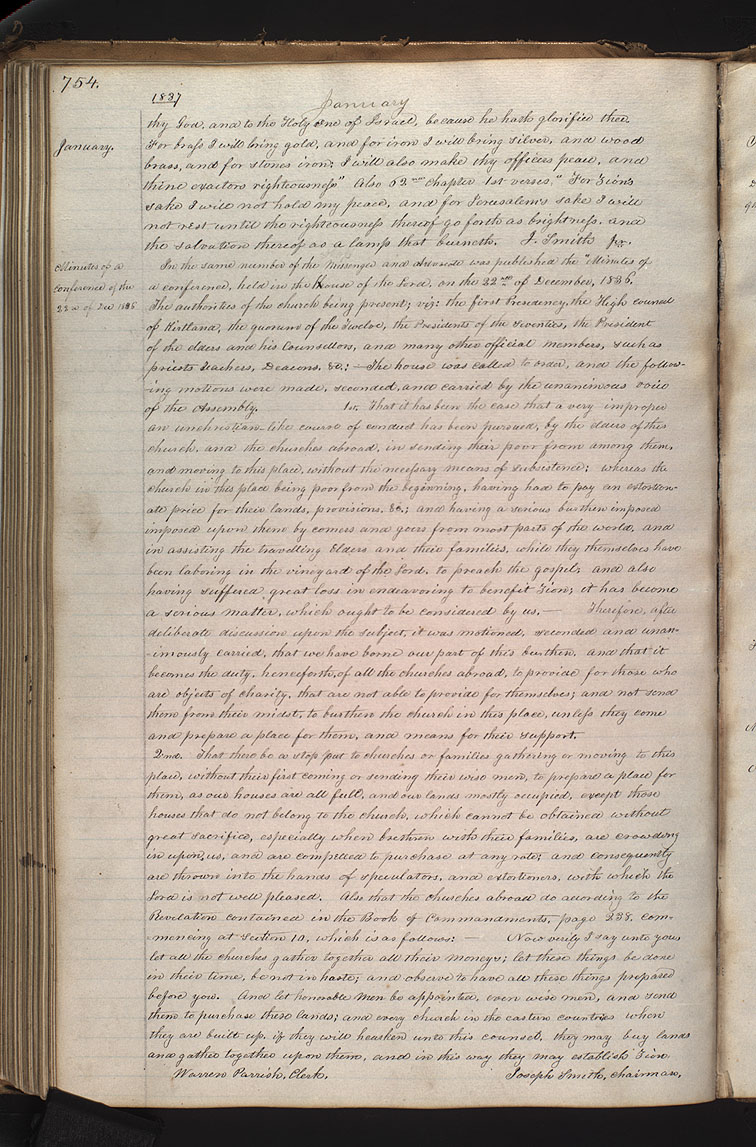 754.
1837
January
thy God, and to the Holy One of Israel, because he hath glorified thee.
January.
For brass I will bring gold, and for iron I will bring silver, and wood
brass, and for stones iron: I will also make thy officers peace, and
thine exactors righteousness" Also 62nd chapter 1st verses, "For Zion's
sake I will not hold my peace, and for Jerusalem's sake I will
not rest until the righteousness thereof go forth as brightness, and
the salvation thereof as a lamp that burneth. J. Smith Jr.
Minutes of a
conference of the
22d of Dec 1836
In the same number of the Messenger and Advocate was published the "Minutes of
a conference, held in the House of the Lord, on the 22nd of December, 1836.
The authorities of the church being present; viz: the first Presidency, the High council
of Kirtland, the quorum of the Twelve, the Presidents of the Seventies, the President
of the elders and his Counsellors, and many other official members, such as
priests teachers, Deacons, &c.: — The house was called to order, and the follow-
ing motions were made, seconded, and carried by the unanimous voice
of the Assembly. 1st. That it has been the case that a very improper
an unchristian-like course of conduct has been pursued, by the elders of this
church, and the churches abroad, in sending their poor from among them,
and moving to this place, without the necessary means of subsistence: whereas the
church in this place being poor from the beginning, having had to pay an extortion-
ate price for their lands, provisions, &c.; and having a serious burthen imposed
imposed upon them by comers and goers from most parts of the world, and
in assisting the travelling Elders and their families, while they themselves have
been laboring in the vineyard of the Lord, to preach the gospel; and also
having suffered great loss in endeavoring to benefit Zion; it has become
a serious matter, which ought to be considered by us. — Therefore, after
deliberate discussion upon the subject, it was motioned, seconded and unan-
-imously carried, that we have borne our part of this burthen, and that it
becomes the duty, henceforth, of all the churches abroad, to provide for those who
are objects of charity, that are not able to provide for themselves; and not send
them from their midst, to burthen the church in this place, unless they come
and prepare a place for them, and means for their support.
2nd. That there be a stop put to churches or families gathering or moving to this
place, without their first coming or sending their wise men, to prepare a place for
them, as our houses are all full, and our lands mostly occupied, except those
houses that do not belong to the church, which cannot be obtained without
great sacrifice, especially when brethren with their families, are crowding
in upon us, and are compelled to purchase at any rate; and consequently
are thrown into the hands of speculators, and extortioners, with which the
Lord is not well pleased. Also that the churches abroad do according to the
Revelation contained in the Book of Commandments, page 238, com-
-mencing at Section 10, which is as follows: — Now verily I say unto you
let all the churches gather together all their moneys; let these things be done
in their time, be not in haste; and observe to have all these things prepared
before you. And let honorable men be appointed, even wise men, and send
them to purchase these lands; and every church in the eastern countries when
they are built up, if they will hearken unto this counsel, they may buy lands
and gather together upon them, and in this way they may establish Zion
Warren Parrish, Clerk. Joseph Smith, Chairman.